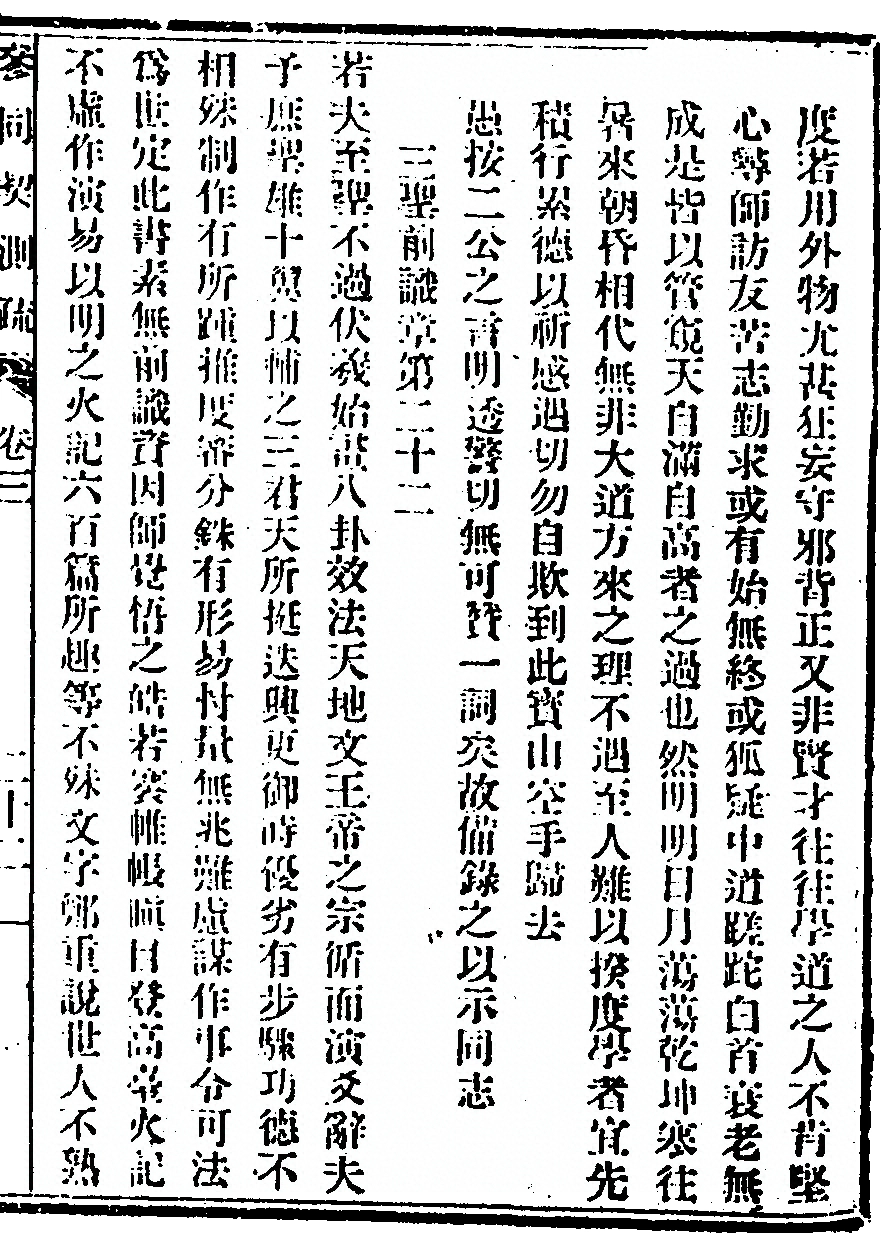 度若用外物尤甚狂妄守邪背正又非賢才往往學道之人不肯堅
心尋師訪友苦志勤求或有始無終或狐疑中道蹉跎白首衰老無
成是皆以管窺天自滿自高者之過也然明明日月蕩蕩乾坤寒往
暑來朝昏相代無非大道方來之理不遇至人難以揆度學者宜先
積行累德以祈感遇切勿自欺到此寶山空手歸去
愚按二公之言明透警切無可贊一詞矣故備錄之以示同志
三聖前識章第二十二
若夫至聖不過伏羲始畫八卦效法天地文王帝之宗循而演爻辭夫
子庶聖雄十翼以輔之三君天所挺迭興更御時優劣有步驟功德不
相殊制作有所踵推度審分銖有形易忖量無兆難慮謀作事令可法
為世定此書素無前識資因師覺悟之皓若褰帷帳瞋目登高臺火記
不虛作演易以明之火記六百篇所趣等不殊文字鄭重說世人不熟
參同契測疏 卷三